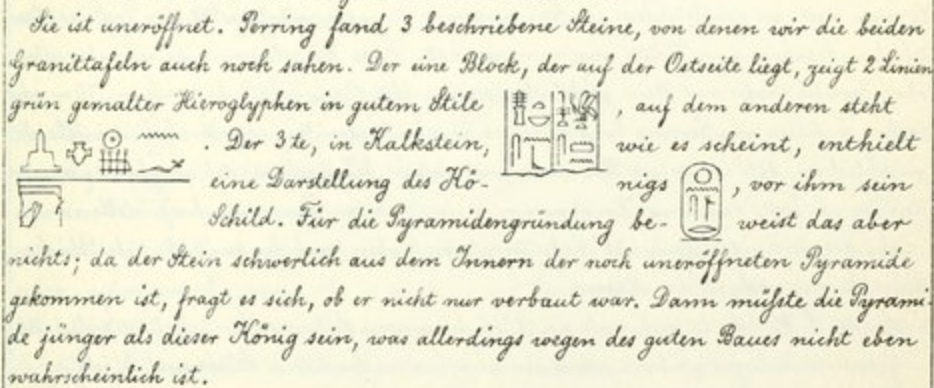 Sie ist uneröffnet. Perring fand 3 beschriebene Steine, von denen wir die beiden
Granittafeln auch noch sahen. Der eine Block, der auf der Ostseite liegt, zeigt 2 Linien
grün gemalter Hieroglyphen in gutem Stile , auf dem anderen steht
. Der 3te, in Kalkstein, wie es scheint, enthielt
eine Darstellung des Kö- nigs , vor ihm sein
Schild. Für die Pyramidengründung be- weist das aber
nichts; da der Stein schwerlich aus dem Innern der noch uneröffneten Pyramide
gekommen ist, fragt es sich, ob er nicht nur verbaut war. Dann müſste die Pyrami-
de jünger als dieser König sein, was allerdings wegen des guten Baues nicht eben
wahrscheinlich ist.